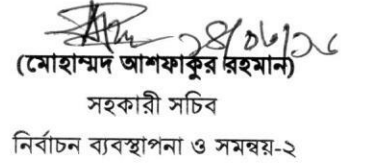 ২৪/০৮/২৫
(মোহাম্মদ আশফাকুর রহমান)
সহকারী সচিব
নির্বাচন ব্যবস্থাপনা ও সমন্বয়-২